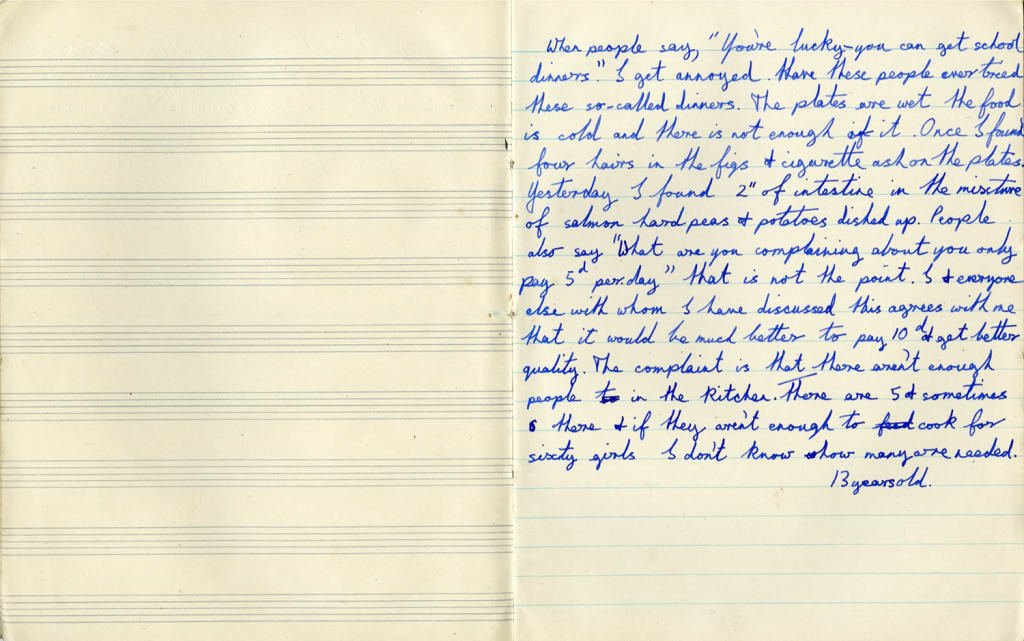 When people say, "You're lucky-you can get school
dinners." I get annoyed. Have these people ever tried
these so-called dinners. The plates are wet the food
is cold and there is not enough of it. Once I found
four hairs in the figs & cigarette ash on the plates.
Yesterday I found 2" of intestine in the mixture
of salmon hard peas & potatoes dished up. People
also say "What are you complaining about you only
pay 5d per.day" that is not the point. I & everyone
else with whom I have discussed this agrees with me
that it would be much better to pay 10d & get better
quality. The complaint is that there aren't enough
people to in the kitchen. There are 5 & sometimes
6 there & if they aren't enough to feed cook for
sixty girls I don't know how many are needed.
13 years old.